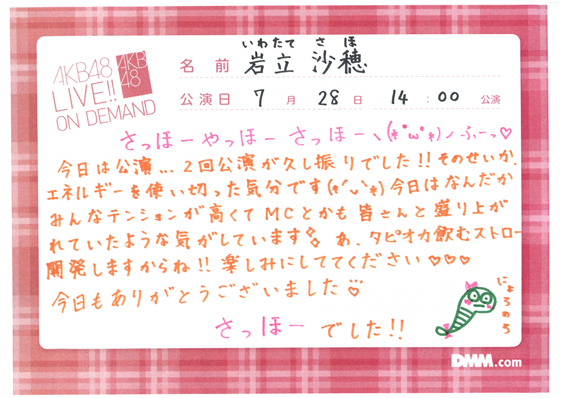 AKB48
LIVE!!
ON DEMAND
AKB
48
いわたて さほ
名前 岩立 沙穂
公演日 7月 28日 14:00 公演
さっほーやっほー さっほーヽ(*'ω'*)ノふーっ♡
今日は公演...2回公演が久し振りでした!!そのせいか、
エネルギーを使い切った気分です(*'◡'*)今日はなんだか
みんなテンションが高くてMCとかも皆さんと盛り上が
れていたような気がしています あ、タピオカ飲むストロー
開発しますからね!!楽しみにしててください♡♡♡
今日もありがとうございました
さっほー でした!!
にょろのすけ
DMM.com